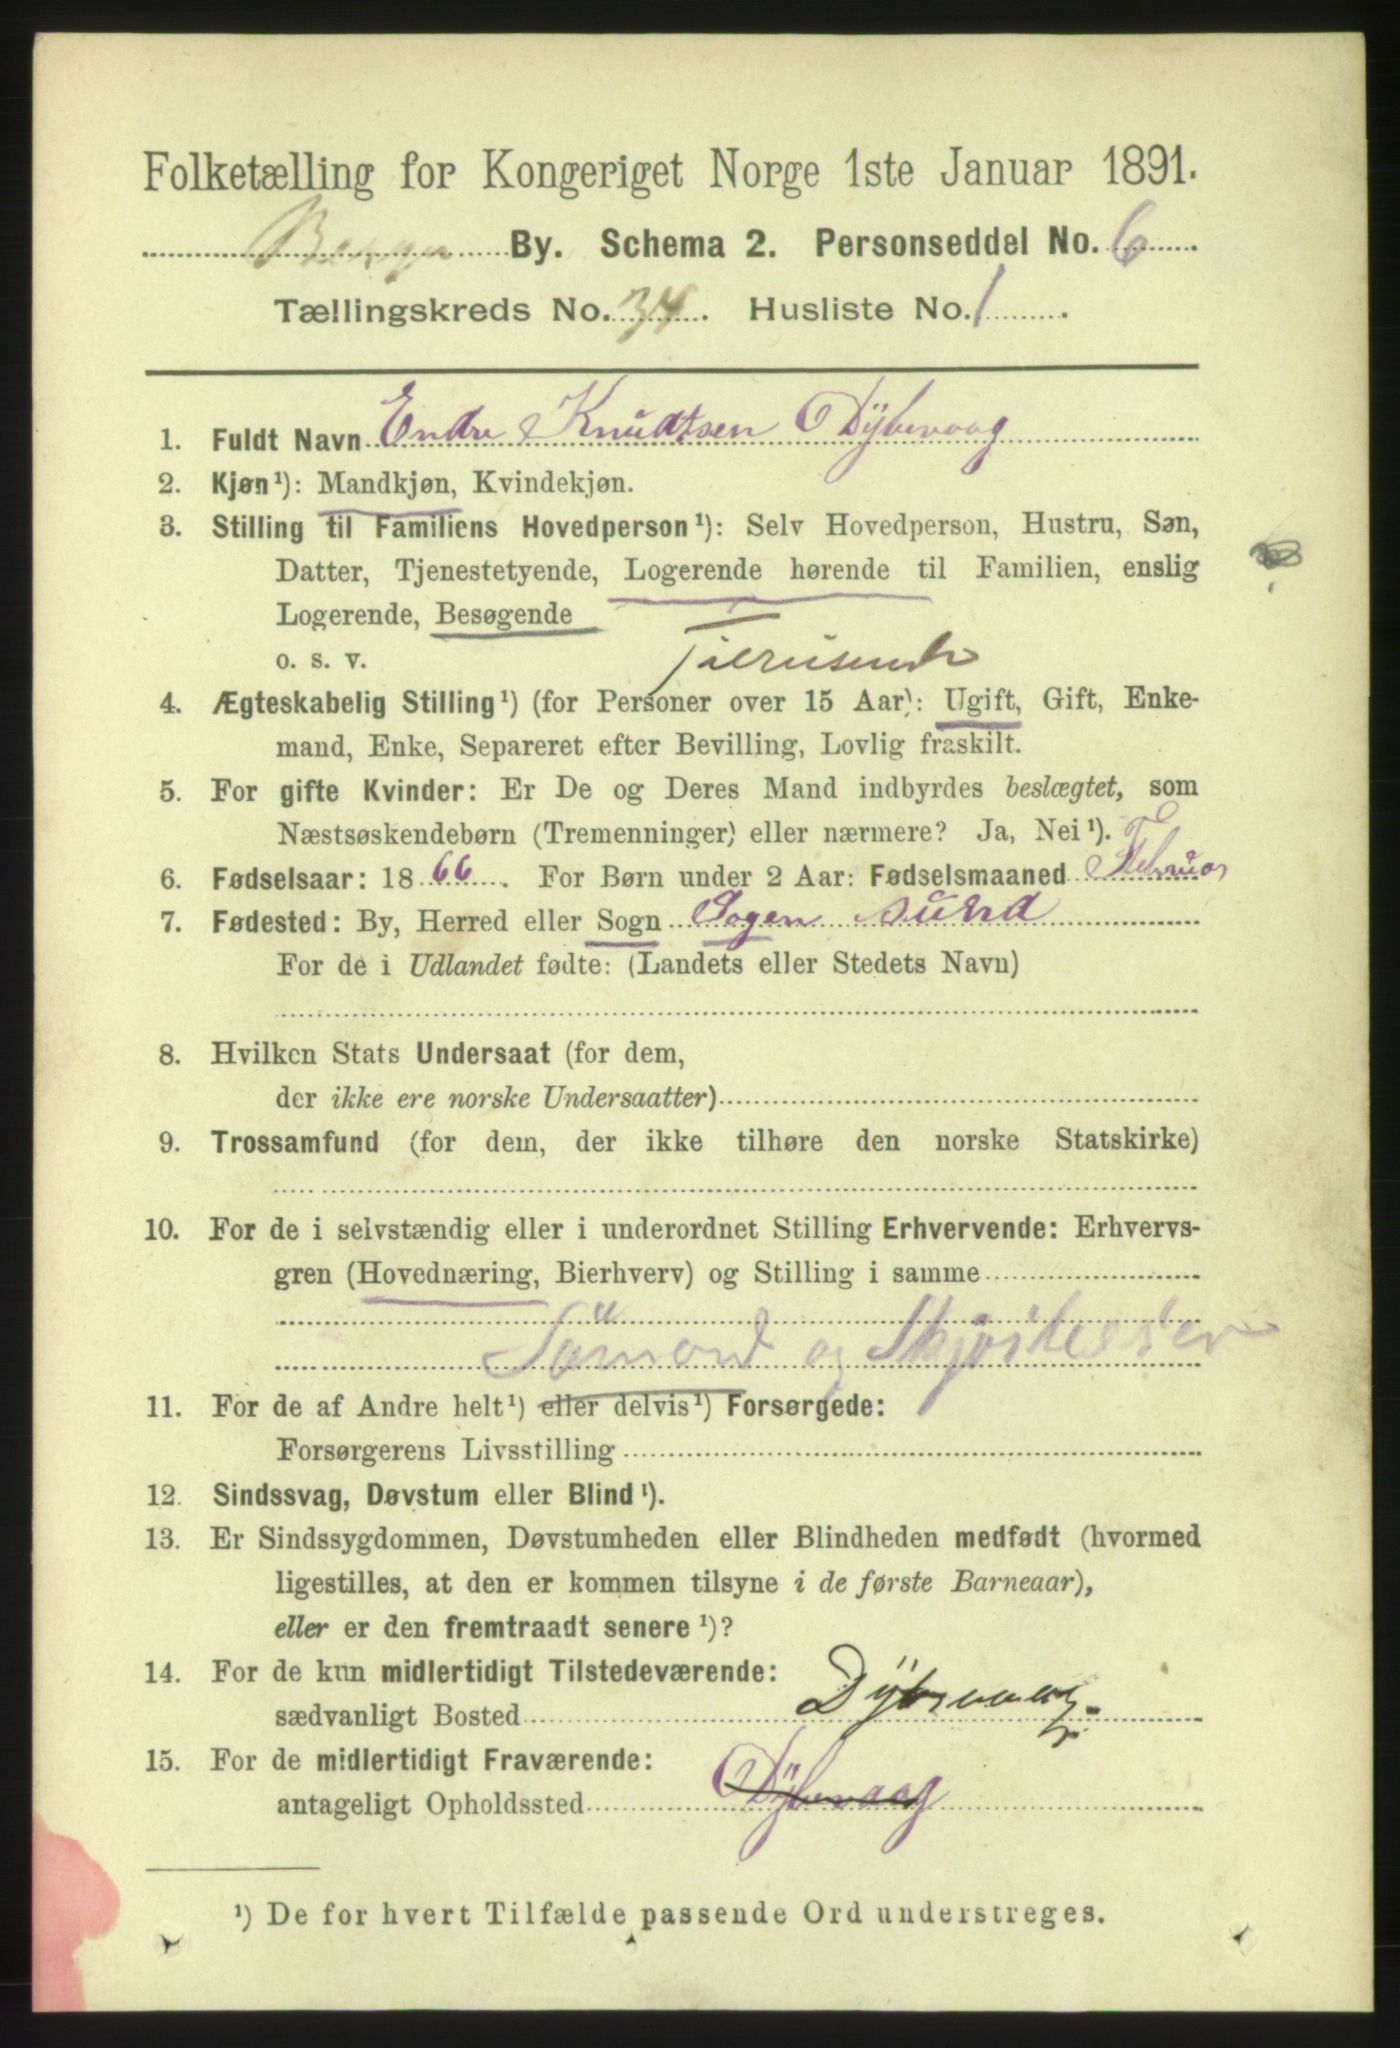 Folketælling for Kongeriget Norge 1ste Januar 1891.
Bergen By. Schema 2. Personseddel No. 6
Tællingskreds No. 34. Husliste No. 1
1. Fuldt Navn Endre Knudtsen Dÿbevaag
2. Kjøn¹): Mandkjøn, Kvindekjøn.
3. Stilling til Familiens Hovedperson¹): Selv Hovedperson, Hustru, Søn,
Datter, Tjenestetyende, Logerende hørende til Familien, enslig
Logerende, Besøgende
o. s. v.
4. Ægteskabelig Stilling¹) (for Personer over 15 Aar): Ugift, Gift, Enke-
mand, Enke, Separeret efter Bevilling, Lovlig fraskilt.
5. For gifte Kvinder: Er De og Deres Mand indbyrdes beslægtet, som
Næstsøskendebørn (Tremenninger) eller nærmere? Ja, Nei¹).
6. Fødselsaar: 1866. For Børn under 2 Aar: Fødselsmaaned Februar
7. Fødested: By, Herred eller Sogn Sogen Sund
For de i Udlandet fødte: (Landets eller Stedets Navn)
8. Hvilken Stats Undersaat (for dem,
der ikke ere norske Undersaatter)
9. Trossamfund (for dem, der ikke tilhøre den norske Statskirke)
10. For de i selvstændig eller i underordnet Stilling Erhvervende: Erhvervs-
gren (Hovednæring, Bierhverv) og Stilling i samme
Sömand og
11. For de af Andre helt¹) eller delvis¹) Forsørgede:
Forsørgerens Livsstilling
12. Sindssvag, Døvstum eller Blind¹).
13. Er Sindssygdommen, Døvstumheden eller Blindheden medfødt (hvormed
ligestilles, at den er kommen tilsyne i de første Barneaar),
eller er den fremtraadt senere¹)?
14. For de kun midlertidigt Tilstedeværende:
sædvanligt Bosted Dÿbevaag
15. For de midlertidigt Fraværende:
antageligt Opholdssted Dÿbevaag
¹) De for hvert Tilfælde passende Ord understreges.